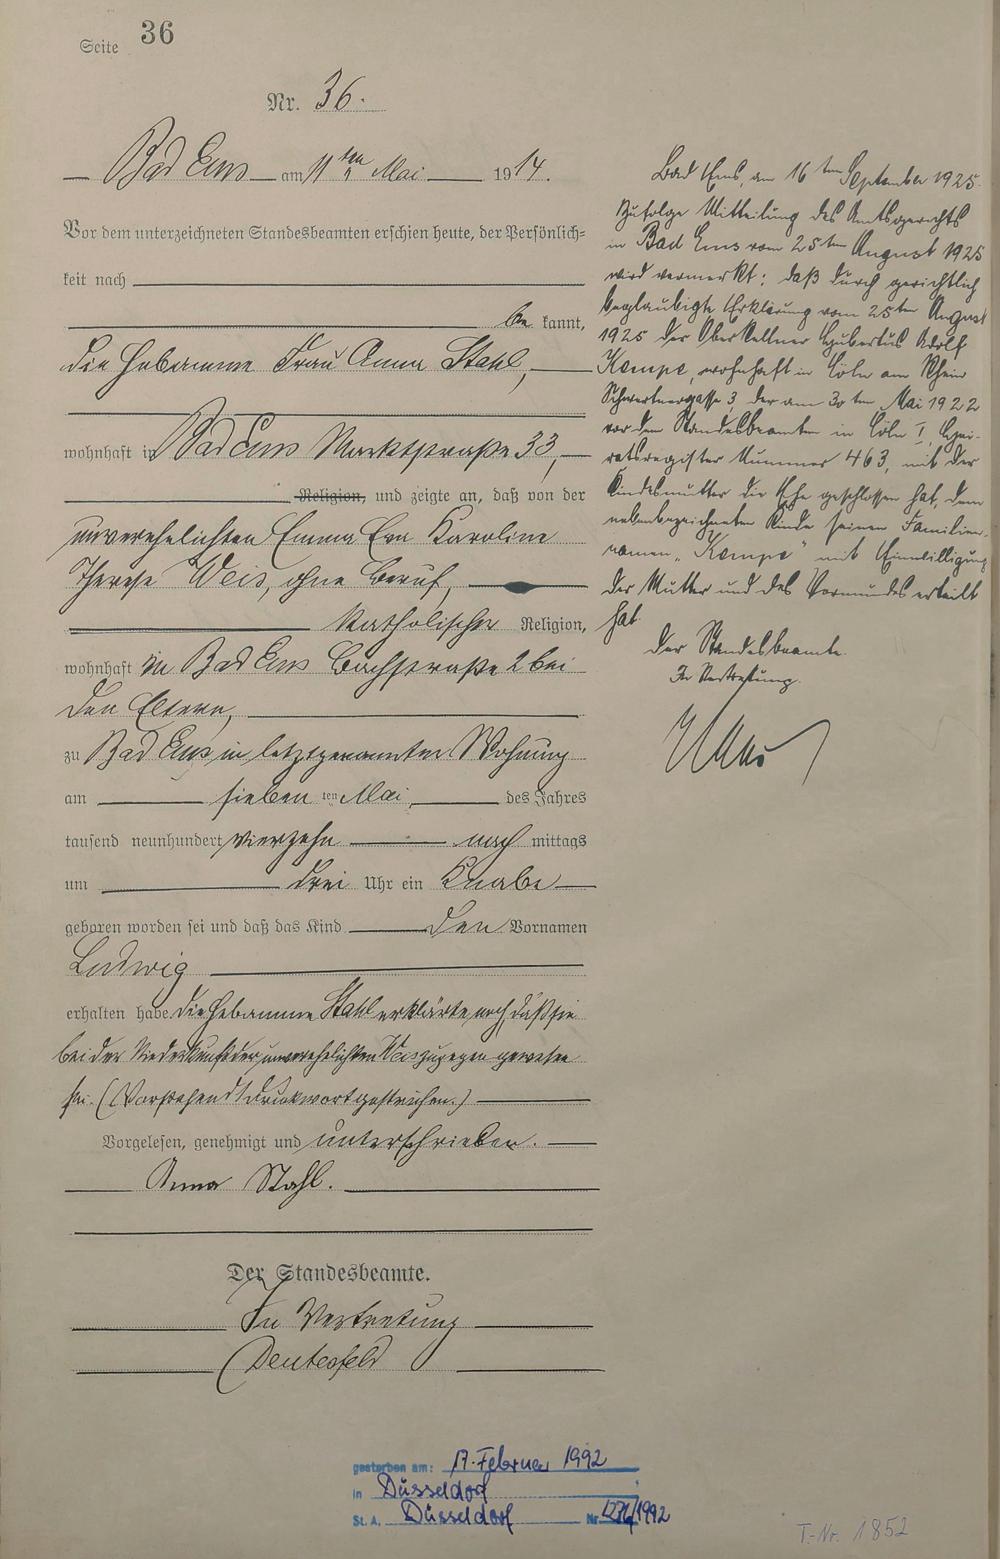 Seite 36
Nr. 36.
Bad Ems am 11ten Mai 1914.
Vor dem unterzeichneten Standesbeamten erschien heute, der Persönlich=
keit nach
be kannt,
die Hebamme Frau Anna Stahl,
wohnhaft in Bad Ems Marktstraße 33,
Religion, und zeigte an, daß von der
unverehelichten Emma Eva Karoline
Therese Weis, ohne Beruf,
katholischer Religion,
wohnhaft in Bad Ems Bachstraße 2 bei
den Eltern,
zu Bad Ems in letztgenannter Wohnung
am sieben ten Mai des Jahres
tausend neunhundert vierzehn nach mittags
um drei Uhr ein Knabe
geboren worden sei und daß das Kind den Vornamen
Ludwig
erhalten habe. Die Hebamme Stahl erklärte noch, daß sie
bei der Niederkunft der unverehelichten Weis zugegen gewesen
sei. (Vorstehend 1 Druckwort gestrichen.)
Vorgelesen, genehmigt und unterschrieben.
Anna Stahl.
Der Standesbeamte.
In Vertretung
Bad Ems, am 16ten September 1925.
Zufolge Mitteilung des Amtsgerichts
in Bad Ems vom 25ten August 1925
wird vermerkt: daß durch gerichtlich
beglaubigte Erklärung vom 25ten August
1925 der Oberkellner Hubertus Adolf
Kempe, wohnhaft in Cöln am Rhein
3, der am 30ten Mai 1922
vor dem Standesbeamten in Cöln I, Hei-
ratsregister Nummer 463, mit der
Kindesmutter die Ehe geschlossen hat, dem
nebenbezeichneten Kinde seinen Familien-
namen „Kempe" mit Einwilligung
der Mutter und des Vormundes erteilt
hat
Der Standesbeamte.
In Vertretung.
gestorben am: 17. Februar 1992
in Düsseldorf
St. A. Düsseldorf Nr. /1992
T.-Nr. 1852